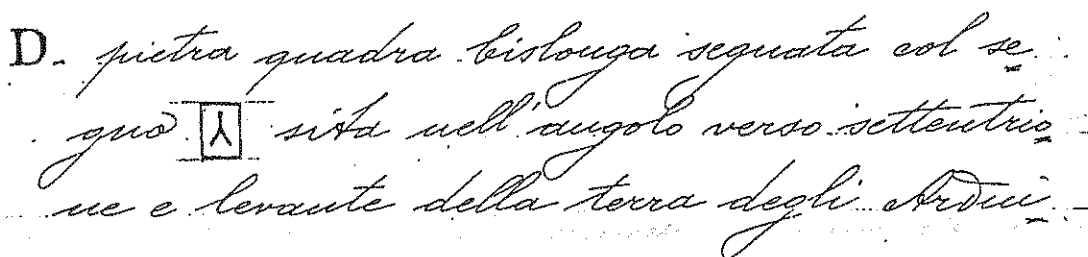 D. pietra quadra bislonga segnata col se
gno ⅄ sita nell'angolo verso settentrio
ne e levante della terra degli Ardui